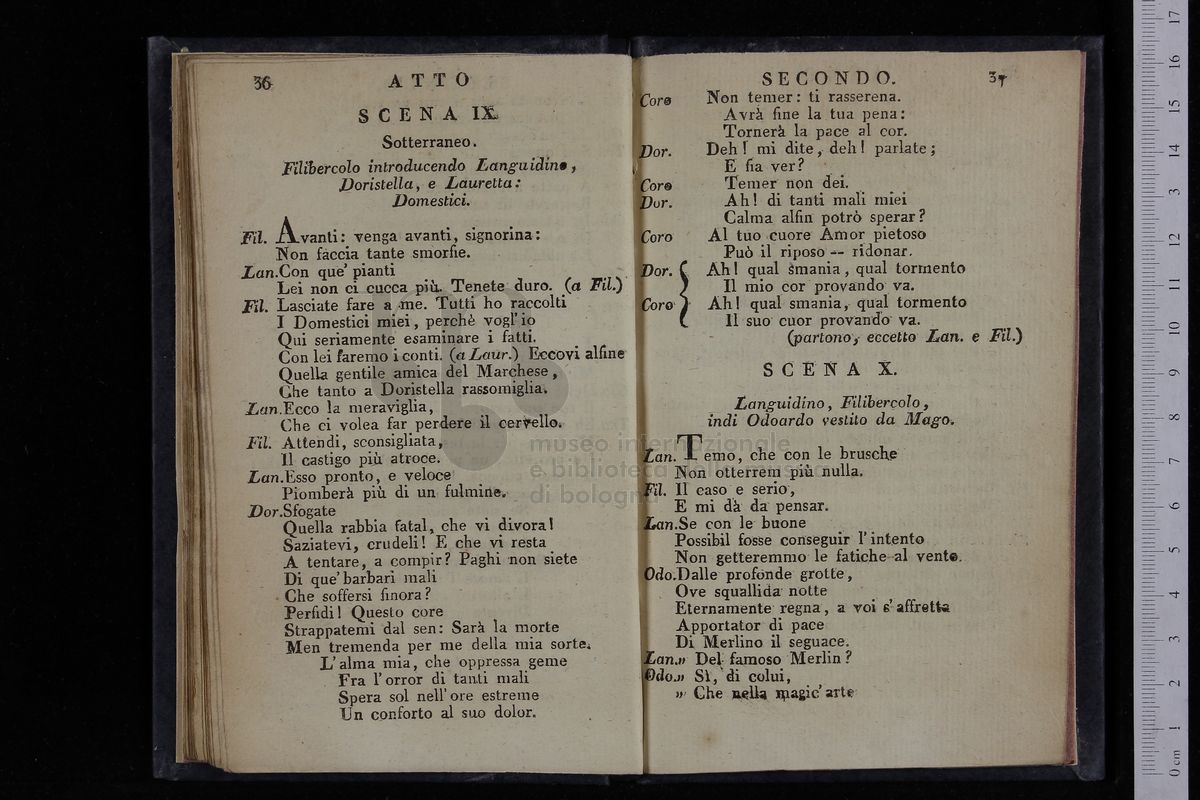 36
ATTO
SCENA IX.
Sotterraneo.
Filibercolo introducendo Languidino,
Doristella, e Lauretta:
Domestici.
Fil. Avanti: venga avanti, signorina:
Non faccia tante smorfie.
Lan. Con que' pianti
Lei non ci cucca più. Tenete duro. (a Fil.)
Fil. Lasciate fare a me. Tutti ho raccolti
I Domestici miei, perchè vogl'io
Qui seriamente esaminare i fatti.
Con lei faremo i conti. (a Laur.) Eccovi alfine
Quella gentile amica del Marchese,
Che tanto a Doristella rassomiglia.
Lan. Ecco la meraviglia,
Che ci volea far perdere il cervello.
Fil. Attendi, sconsigliata,
Il castigo più atroce.
Lan. Esso pronto, e veloce
Piomberà più di un fulmine.
Dor. Sfogate
Quella rabbia fatal, che vi divora!
Saziatevi, crudeli! E che vi resta
A tentare, a compir? Paghi non siete
Di que' barbari mali
Che soffersi finora?
Perfidi! Questo core
Strappatemi dal sen: Sarà la morte
Men tremenda per me della mia sorte.
L'alma mia, che oppressa geme
Fra l'orror di tanti mali
Spera sol nell'ore estreme
Un conforto al suo dolor.
SECONDO.
37
Coro Non temer: ti rasserena.
Avrà fine la tua pena:
Tornerà la pace al cor.
Dor. Deh! mi dite, deh! parlate;
E fia ver?
Coro Temer non dei.
Dor. Ah! di tanti mali miei
Calma alfin potrò sperar?
Coro Al tuo cuore Amor pietoso
Può il riposo -- ridonar.
Dor. { Ah! qual smania, qual tormento
Il mio cor provando va.
Coro { Ah! qual smania, qual tormento
Il suo cuor provando va.
(partono, eccetto Lan. e Fil.)
SCENA X.
Languidino, Filibercolo,
indi Odoardo vestito da Mago.
Lan. Temo, che con le brusche
Non otterrem più nulla.
Fil. Il caso e serio,
E mi dà da pensar.
Lan. Se con le buone
Possibil fosse conseguir l'intento
Non getteremmo le fatiche al vento.
Odo. Dalle profonde grotte,
Ove squallida notte
Eternamente regna, a voi s'affretta
Apportator di pace
Di Merlino il seguace.
Lan.» Del famoso Merlin?
Odo.» Sì, di colui,
» Che nella magic'arte
museo internazionale
e biblioteca della musica
di bologna
0 cm 1 2 3 4 5 6 7 8 9 10 11 12 13 14 15 16 17